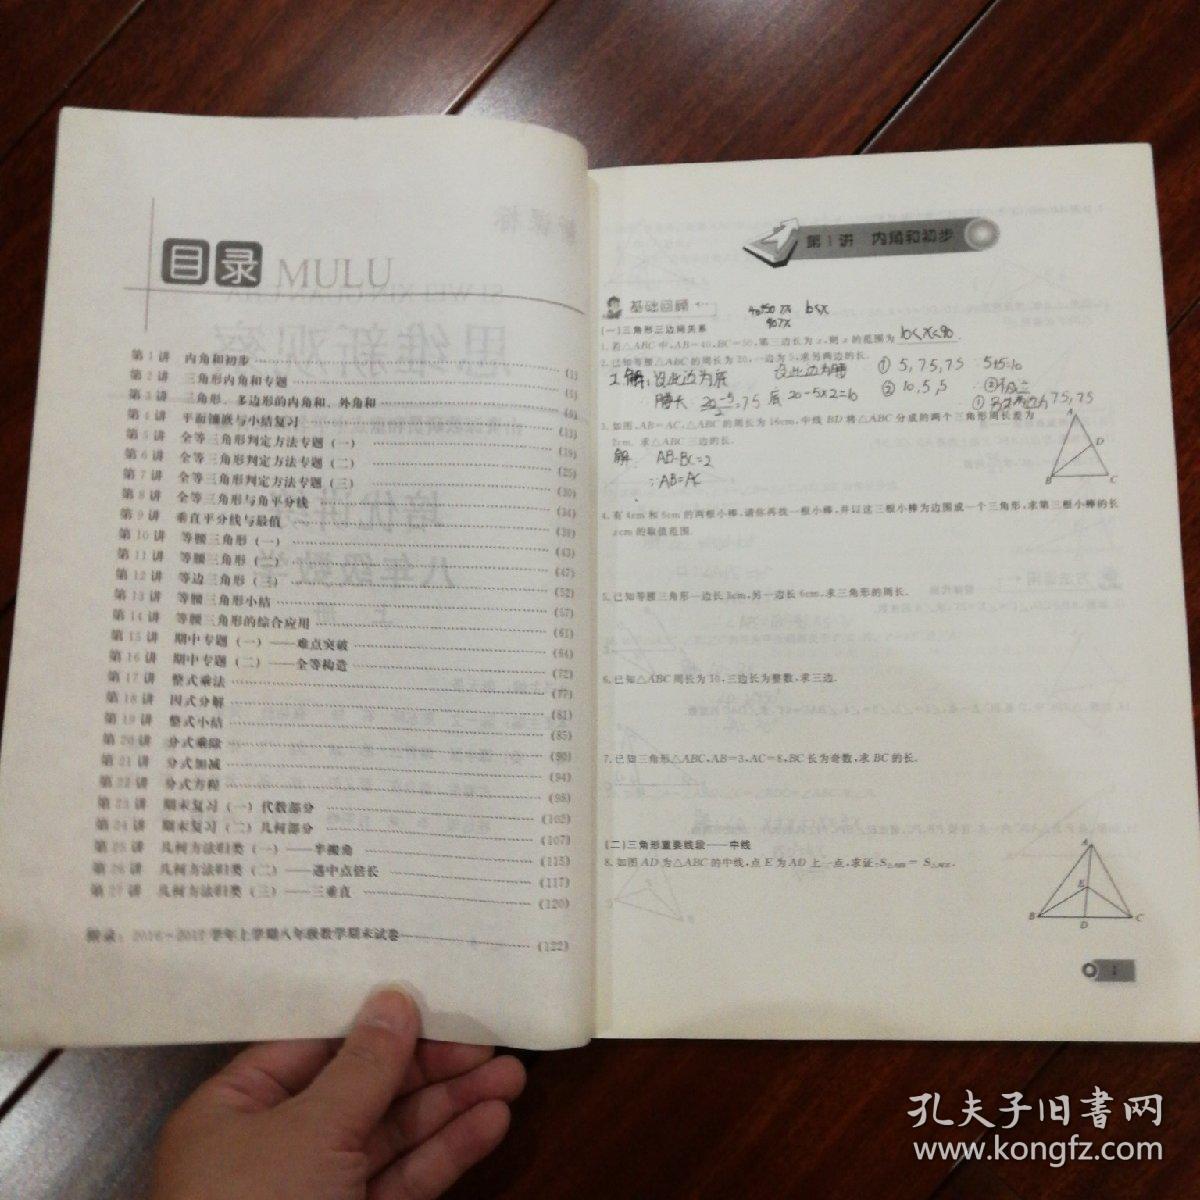 目录 MULU
第1讲 内角和初步 (1)
第2讲 三角形内角和专题 (5)
第3讲 三角形、多边形的内角和、外角和 (9)
第4讲 平面镶嵌与小结复习 (13)
第5讲 全等三角形判定方法专题(一) (19)
第6讲 全等三角形判定方法专题(二) (25)
第7讲 全等三角形判定方法专题(三) (30)
第8讲 全等三角形与角平分线 (34)
第9讲 垂直平分线与最值 (39)
第10讲 等腰三角形(一) (43)
第11讲 等腰三角形(二) (47)
第12讲 等边三角形(三) (52)
第13讲 等腰三角形小结 (57)
第14讲 等腰三角形的综合应用 (61)
第15讲 期中专题(一)——难点突破 (64)
第16讲 期中专题(二)——全等构造 (72)
第17讲 整式乘法 (77)
第18讲 因式分解 (81)
第19讲 整式小结 (85)
第20讲 分式乘除 (90)
第21讲 分式加减 (94)
第22讲 分式方程 (98)
第23讲 期末复习(一)代数部分 (102)
第24讲 期末复习(二)几何部分 (107)
第25讲 几何方法归类(一)——半提角 (115)
第26讲 几何方法归类(二)——遇中点倍长 (117)
第27讲 几何方法归类(三)——三垂直 (120)
附录:2016~2017学年上学期八年级数学期末试卷 (122)
第1讲 内角和初步
基础回顾
(一)三角形三边间关系
10<x
90>x
1.若△ABC中,AB=40,BC=50,第三边长为x,则x的范围为10<x<90.
2.已知等腰△ABC的周长为20,一边为5,求另两边的长.
2.解:设此边为底 设此边为腰 ① 5,7.5,7.5 5+5=10
腰长:20-5/2=7.5 底 20-5×2=10 ② 10,5,5
7.5,7.5
3.如图,AB=AC,△ABC的周长为16cm,中线BD将△ABC分成的两个三角形周长差为
2cm,求△ABC三边的长.
解 AB-BC=2
∵AB=AC
A
D
B C
4.有4cm和6cm的两根小棒,请你再找一根小棒,并以这三根小棒为边围成一个三角形,求第三根小棒的长
xcm的取值范围.
5.已知等腰三角形一边长3cm,另一边长6cm,求三角形的周长.
6.已知△ABC周长为10,三边长为整数,求三边.
7.已知三角形△ABC,AB=3,AC=8,BC长为奇数,求BC的长.
(二)三角形重要线段——中线
8.如图AD为△ABC的中线,点E为AD上一点,求证:S△ABE=S△ACE.
A
E
B D C
1
孔夫子旧書网
www.kongfz.com